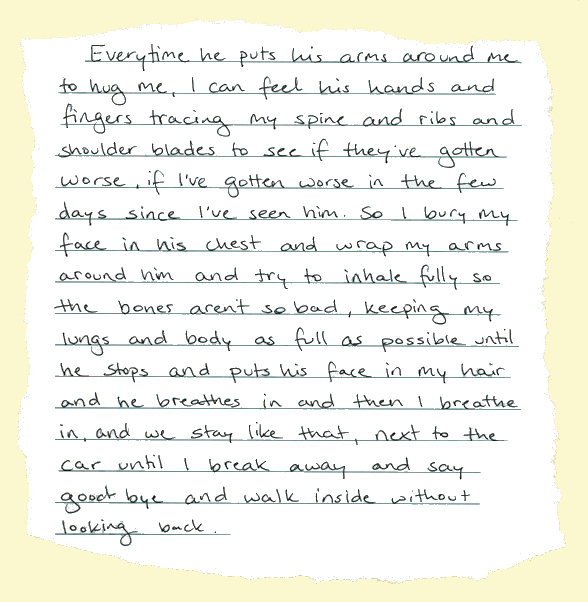 Everytime he puts his arms around me
to hug me, I can feel his hands and
fingers tracing my spine and ribs and
shoulder blades to see if they've gotten
worse, if I've gotten worse in the few
days since I've seen him. So I bury my
face in his chest and wrap my arms
around him and try to inhale fully so
the bones aren't so bad, keeping my
lungs and body as full as possible until
he stops and puts his face in my hair
and he breathes in and then I breathe
in, and we stay like that, next to the
car until I break away and say
good bye and walk inside without
looking back.